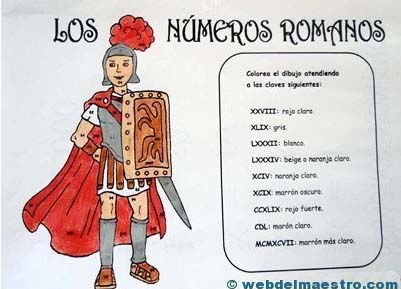 LOS NÚMEROS ROMANOS
Colorea el dibujo atendiendo
a las claves siguientes:
XXVIII: rojo claro.
XLIX: gris.
LXXXII: blanco.
LXXXIV: beige o naranja claro.
XCIV: naranja claro.
XCIX: marrón oscuro.
CCXLIX: rojo fuerte.
CDL: marón claro.
MCMXCVII: marrón más claro.
© webdelmaestro.com